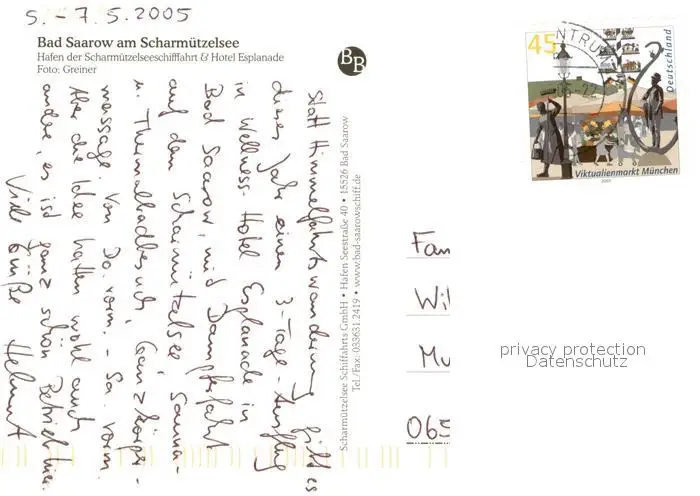 5. - 7.5.2005
Bad Saarow am Scharmützelsee
Hafen der Scharmützelseeschifffahrt & Hotel Esplanade
Foto: Greiner
BB
Statt Himmelfahrtswanderung gibt es
dieses Jahr einen 3-Tage-Ausflug
in Wellness-Hotel Esplanade in
Bad Saarow, mit Dampferfahrt
auf den Scharmützelsee Sauna-
u. Thermalbadbesuch, Ganzkörper-
massage. Von Do. vorm. - Sa. vorm.
Aber die Idee hatten wohl auch
andere, es ist ganz schön Betrieb hier.
Viele Grüße Helmut
Scharmützelsee Schiffahrts GmbH • Hafen Seestraße 40 • 15526 Bad Saarow
Tel./Fax: 033631.2419 • www.bad-saarowschiff.de
45
Deutschland
Viktualienmarkt München
NTRUM
Fam
Wil
Mu
065
privacy protection
Datenschutz